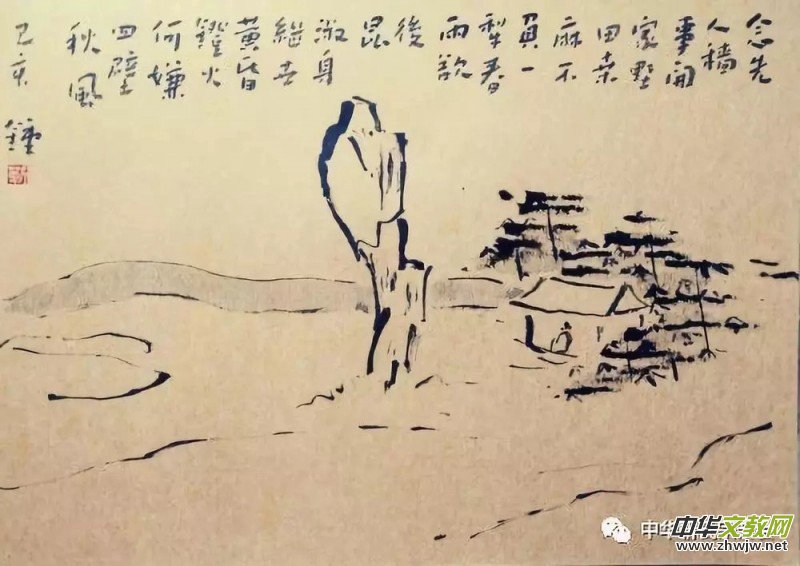 念先
人穡
事開
家
田桒
麻不
負一
犁春
雨
後
昆
淑身
繼世
黄昏
鐙火
何嫌
四壁
秋風
己亥 鍾
中华
中华文教网
www.zhwjw.net